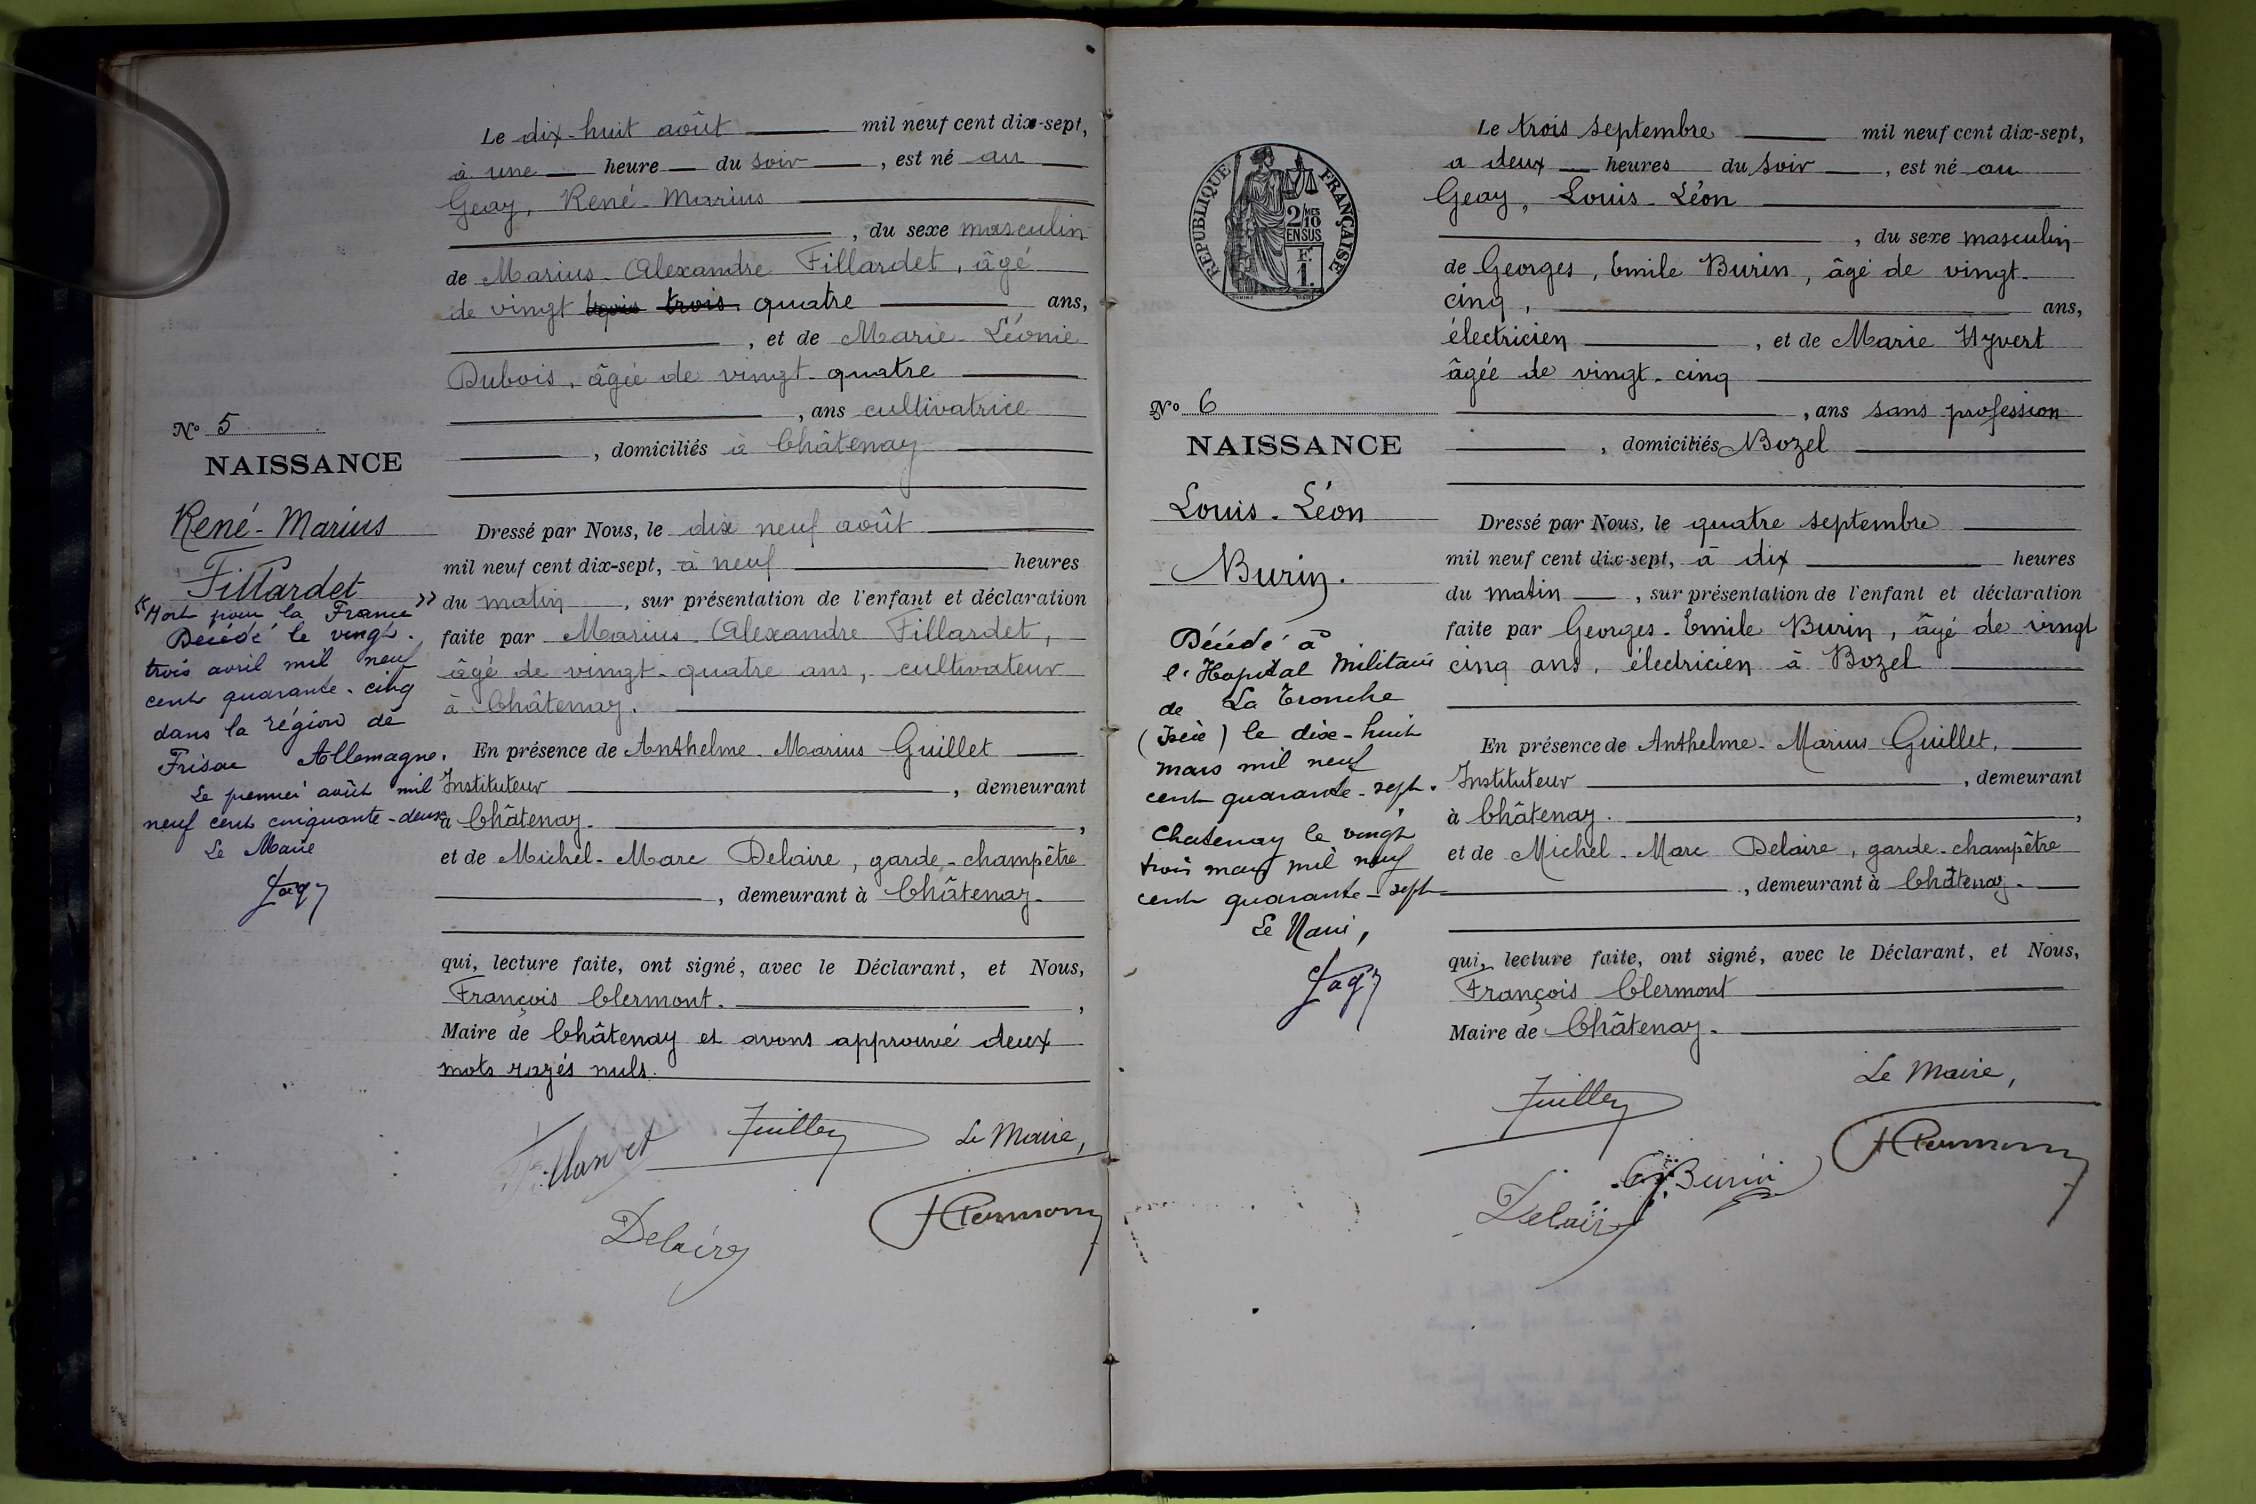 Le dix-huit août mil neuf cent dix-sept,
à une heure du soir, est né au
Geay, René-Marius
, du sexe masculin
de Marius-Alexandre Fillardet, âgé
de vingt trois quatre ans,
, et de Marie-Léonie
Dubois, âgée de vingt-quatre
, ans cultivatrice
, domiciliés à Châtenay
Nº 5
NAISSANCE
René-Marius
Fillardet
"Mort pour la France"
Décédé le vingt-
trois avril mil neuf
cent quarante-cinq
dans la région de
Frisac Allemagne.
Le premier août mil
neuf cent cinquante-deux
Le Maire
Dressé par Nous, le dix neuf août
mil neuf cent dix-sept, à neuf heures
du matin, sur présentation de l'enfant et déclaration
faite par Marius-Alexandre Fillardet,
âgé de vingt-quatre ans, cultivateur
à Châtenay.
En présence de Anthelme-Marius Guillet
Instituteur, demeurant
à Châtenay.,
et de Michel-Marc Delaire, garde-champêtre
, demeurant à Châtenay.
qui, lecture faite, ont signé, avec le Déclarant, et Nous,
François Clermont.,
Maire de Châtenay et avons approuvé deux
mots rayés nuls.
Fillardet
Guillet
Le Maire,
Delaire
FClermont
RÉPUBLIQUE FRANÇAISE
2/10 MES
EN SUS
F.
1.
Le trois septembre mil neuf cent dix-sept,
a deux heures du soir, est né au
Geay, Louis-Léon
, du sexe masculin
de Georges, Emile Burin, âgé de vingt-
cinq, ans,
électricien, et de Marie Hyvert
âgée de vingt-cinq
, ans sans profession
, domiciliés Bozel
Nº 6
NAISSANCE
Louis-Léon
Burin.
Décédé à
l'Hopital Militaire
de La Tronche
(Isère) le dix-huit
mars mil neuf
cent quarante-sept.
Chatenay le vingt
trois mars mil neuf
cent quarante-sept
Le Maire,
Dressé par Nous, le quatre septembre
mil neuf cent dix-sept, à dix heures
du matin, sur présentation de l'enfant et déclaration
faite par Georges-Emile Burin, âgé de vingt
cinq ans, électricien à Bozel
En présence de Anthelme-Marius Guillet,
Instituteur, demeurant
à Châtenay.,
et de Michel-Marc Delaire, garde-champêtre
, demeurant à Châtenay.
qui, lecture faite, ont signé, avec le Déclarant, et Nous,
François Clermont
Maire de Châtenay.
Le Maire,
Guillet
FClermont
G. Burin
Delaire